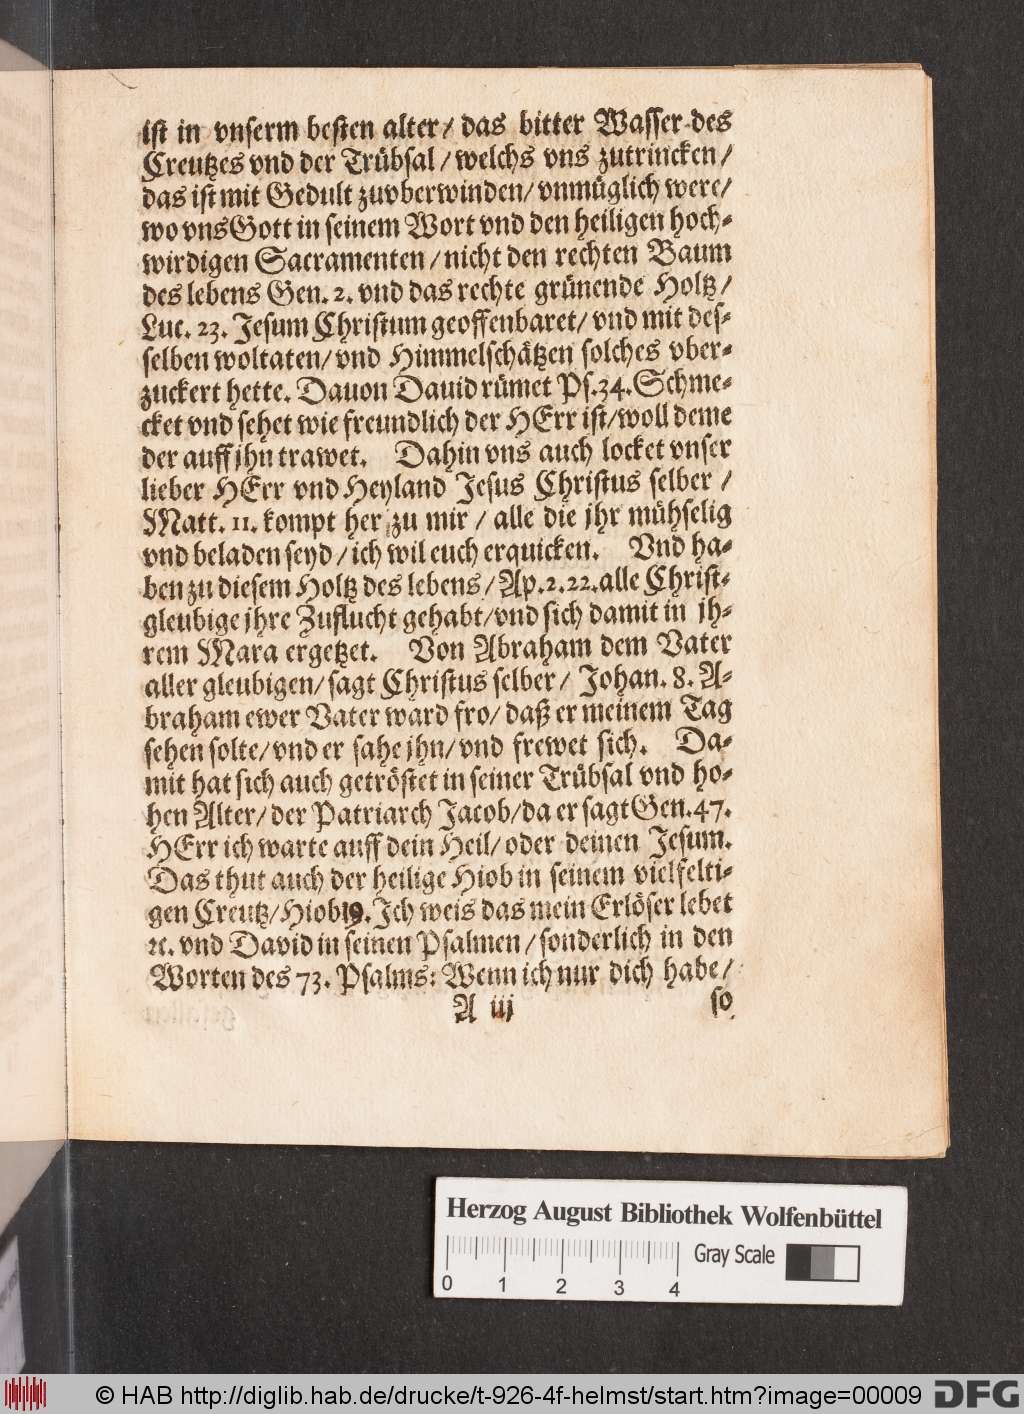 ist in vnserm besten alter/ das bitter Wasser des
Creutzes vnd der Trübsal/ welchs vns zutrincken/
das ist mit Gedult zuvberwinden/ vnmüglich were/
wo vns Gott in seinem Wort vnd den heiligen hoch-
wirdigen Sacramenten/ nicht den rechten Baum
des lebens Gen. 2. vnd das rechte grünende Holtz/
Luc. 23. Jesum Christum geoffenbaret/ vnd mit des-
selben woltaten/ vnd Himmelschätzen solches vber-
zuckert hette. Dauon Dauid rümet Ps. 34. Schme-
cket vnd sehet wie freundlich der HErr ist/ woll deme
der auff jhn trawet. Dahin vns auch locket vnser
lieber HErr vnd Heyland Jesus Christus selber/
Matt. 11. kompt her zu mir/ alle die jhr mühselig
vnd beladen seyd/ ich wil euch erquicken. Vnd ha-
ben zu diesem Holtz des lebens/ Ap. 2. 22. alle Christ-
gleubige jhre Zuflucht gehabt/ vnd sich damit in jh-
rem Mara ergetzet. Von Abraham dem Vater
aller gleubigen/ sagt Christus selber/ Johan. 8. A-
braham ewer Vater ward fro/ daß er meinem Tag
sehen solte/ vnd er sahe jhn/ vnd frewet sich. Da-
mit hat sich auch getröstet in seiner Trübsal vnd ho-
hen Alter/ der Patriarch Jacob/ da er sagt Gen. 47.
HErr ich warte auff dein Heil/ oder deinen Jesum.
Das thut auch der heilige Hiob in seinem vielfelti-
gen Creutz/ Hiob 19. Ich weis das mein Erlöser lebet
ꝛc. vnd David in seinen Psalmen/ sonderlich in den
Worten des 73. Psalms: Wenn ich nur dich habe/
A iij so
Herzog August Bibliothek Wolfenbüttel
Gray Scale
0 1 2 3 4
© HAB http://diglib.hab.de/drucke/t-926-4f-helmst/start.htm?image=00009 DFG